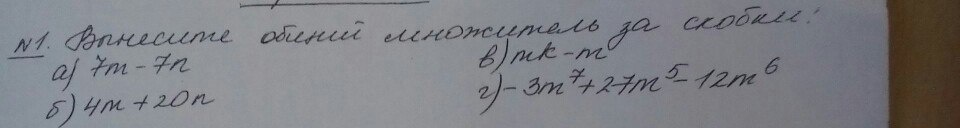 №1. Вынесите общий множитель за скобки:
а) 7m - 7n
б) 4m + 20n
в) mk - m
г) -3m⁷ + 27m⁵ - 12m⁶